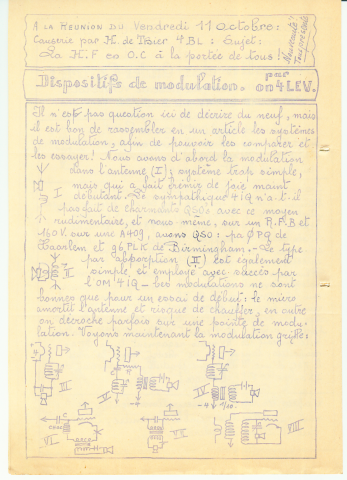 A LA REUNION DU Vendredi 11 octobre:
Causerie par H. de Thier 4BL: Sujet:
La H.F en O.C à la portée de tous!
Nouveauté!
Dispositifs de modulation. par ON4LEV.
Il n'est pas question ici de décrire du neuf, mais
il est bon de rassembler en un article les systèmes
de modulation, afin de pouvoir les comparer et
les essayer! Nous avons d'abord la modulation
dans l'antenne (I); système trop simple,
mais qui a fait frémir de joie maint
débutant. Le sympathique 4IQ n'a-t-il
pas fait de charmants QSOs avec ce moyen
rudimentaire, et nous-même, sur un
160V. sur une A409, avons QSO: PAØPQ de
Haarlem et G6PLK de Birmingham. - Le type
par absorption (II) est également
simple, et employé avec succès par
l'OM 4IQ - Ces modulations ne sont
bonnes que pour un essai de début: le micro
amortit l'antenne et risque de chauffer, en outre
on décroche parfois sur une pointe de modu-
lation. Voyons maintenant la modulation grille:
I
II
III
IV
V
VI
VII
VIII